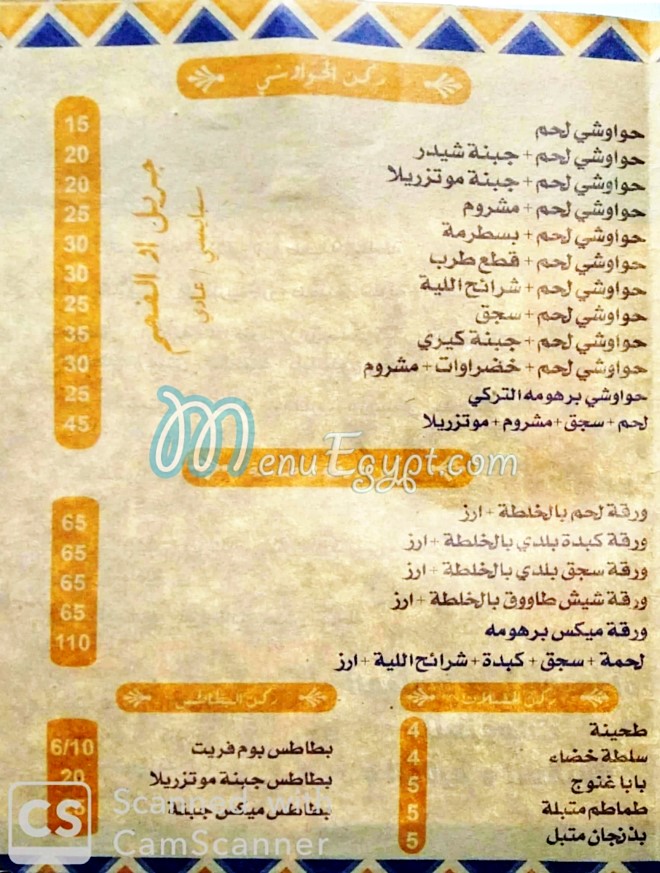 ركن الحواوشي
حواوشي لحم 15
حواوشي لحم + جبنة شيدر 20
حواوشي لحم + جبنة موتزريلا 20
حواوشي لحم + مشروم 25
حواوشي لحم + بسطرمة 30
حواوشي لحم + قطع طرب 30
حواوشي لحم + شرائح اللية 25
حواوشي لحم + سجق 35
حواوشي لحم + جبنة كيري 30
حواوشي لحم + خضراوات + مشروم 25
حواوشي برهومه التركي 45
لحم + سجق + مشروم + موتزريلا
سبايسي / عادي
MenuEgypt.com
ورقة لحم بالخلطة + ارز 65
ورقة كبدة بلدي بالخلطة + ارز 65
ورقة سجق بلدي بالخلطة + ارز 65
ورقة شيش طاووق بالخلطة + ارز 65
ورقة ميكس برهومه 110
لحمة + سجق + كبدة + شرائح اللية + ارز
طحينة 4
سلطة خضاء 4
بابا غنوج 5
طماطم متبلة 5
بذنجان متبل 5
ركن البطاطس
بطاطس بوم فريت 6/10
بطاطس جبنة موتزريلا 20
بطاطس ميكس جبنة
CS
Scanned with
CamScanner